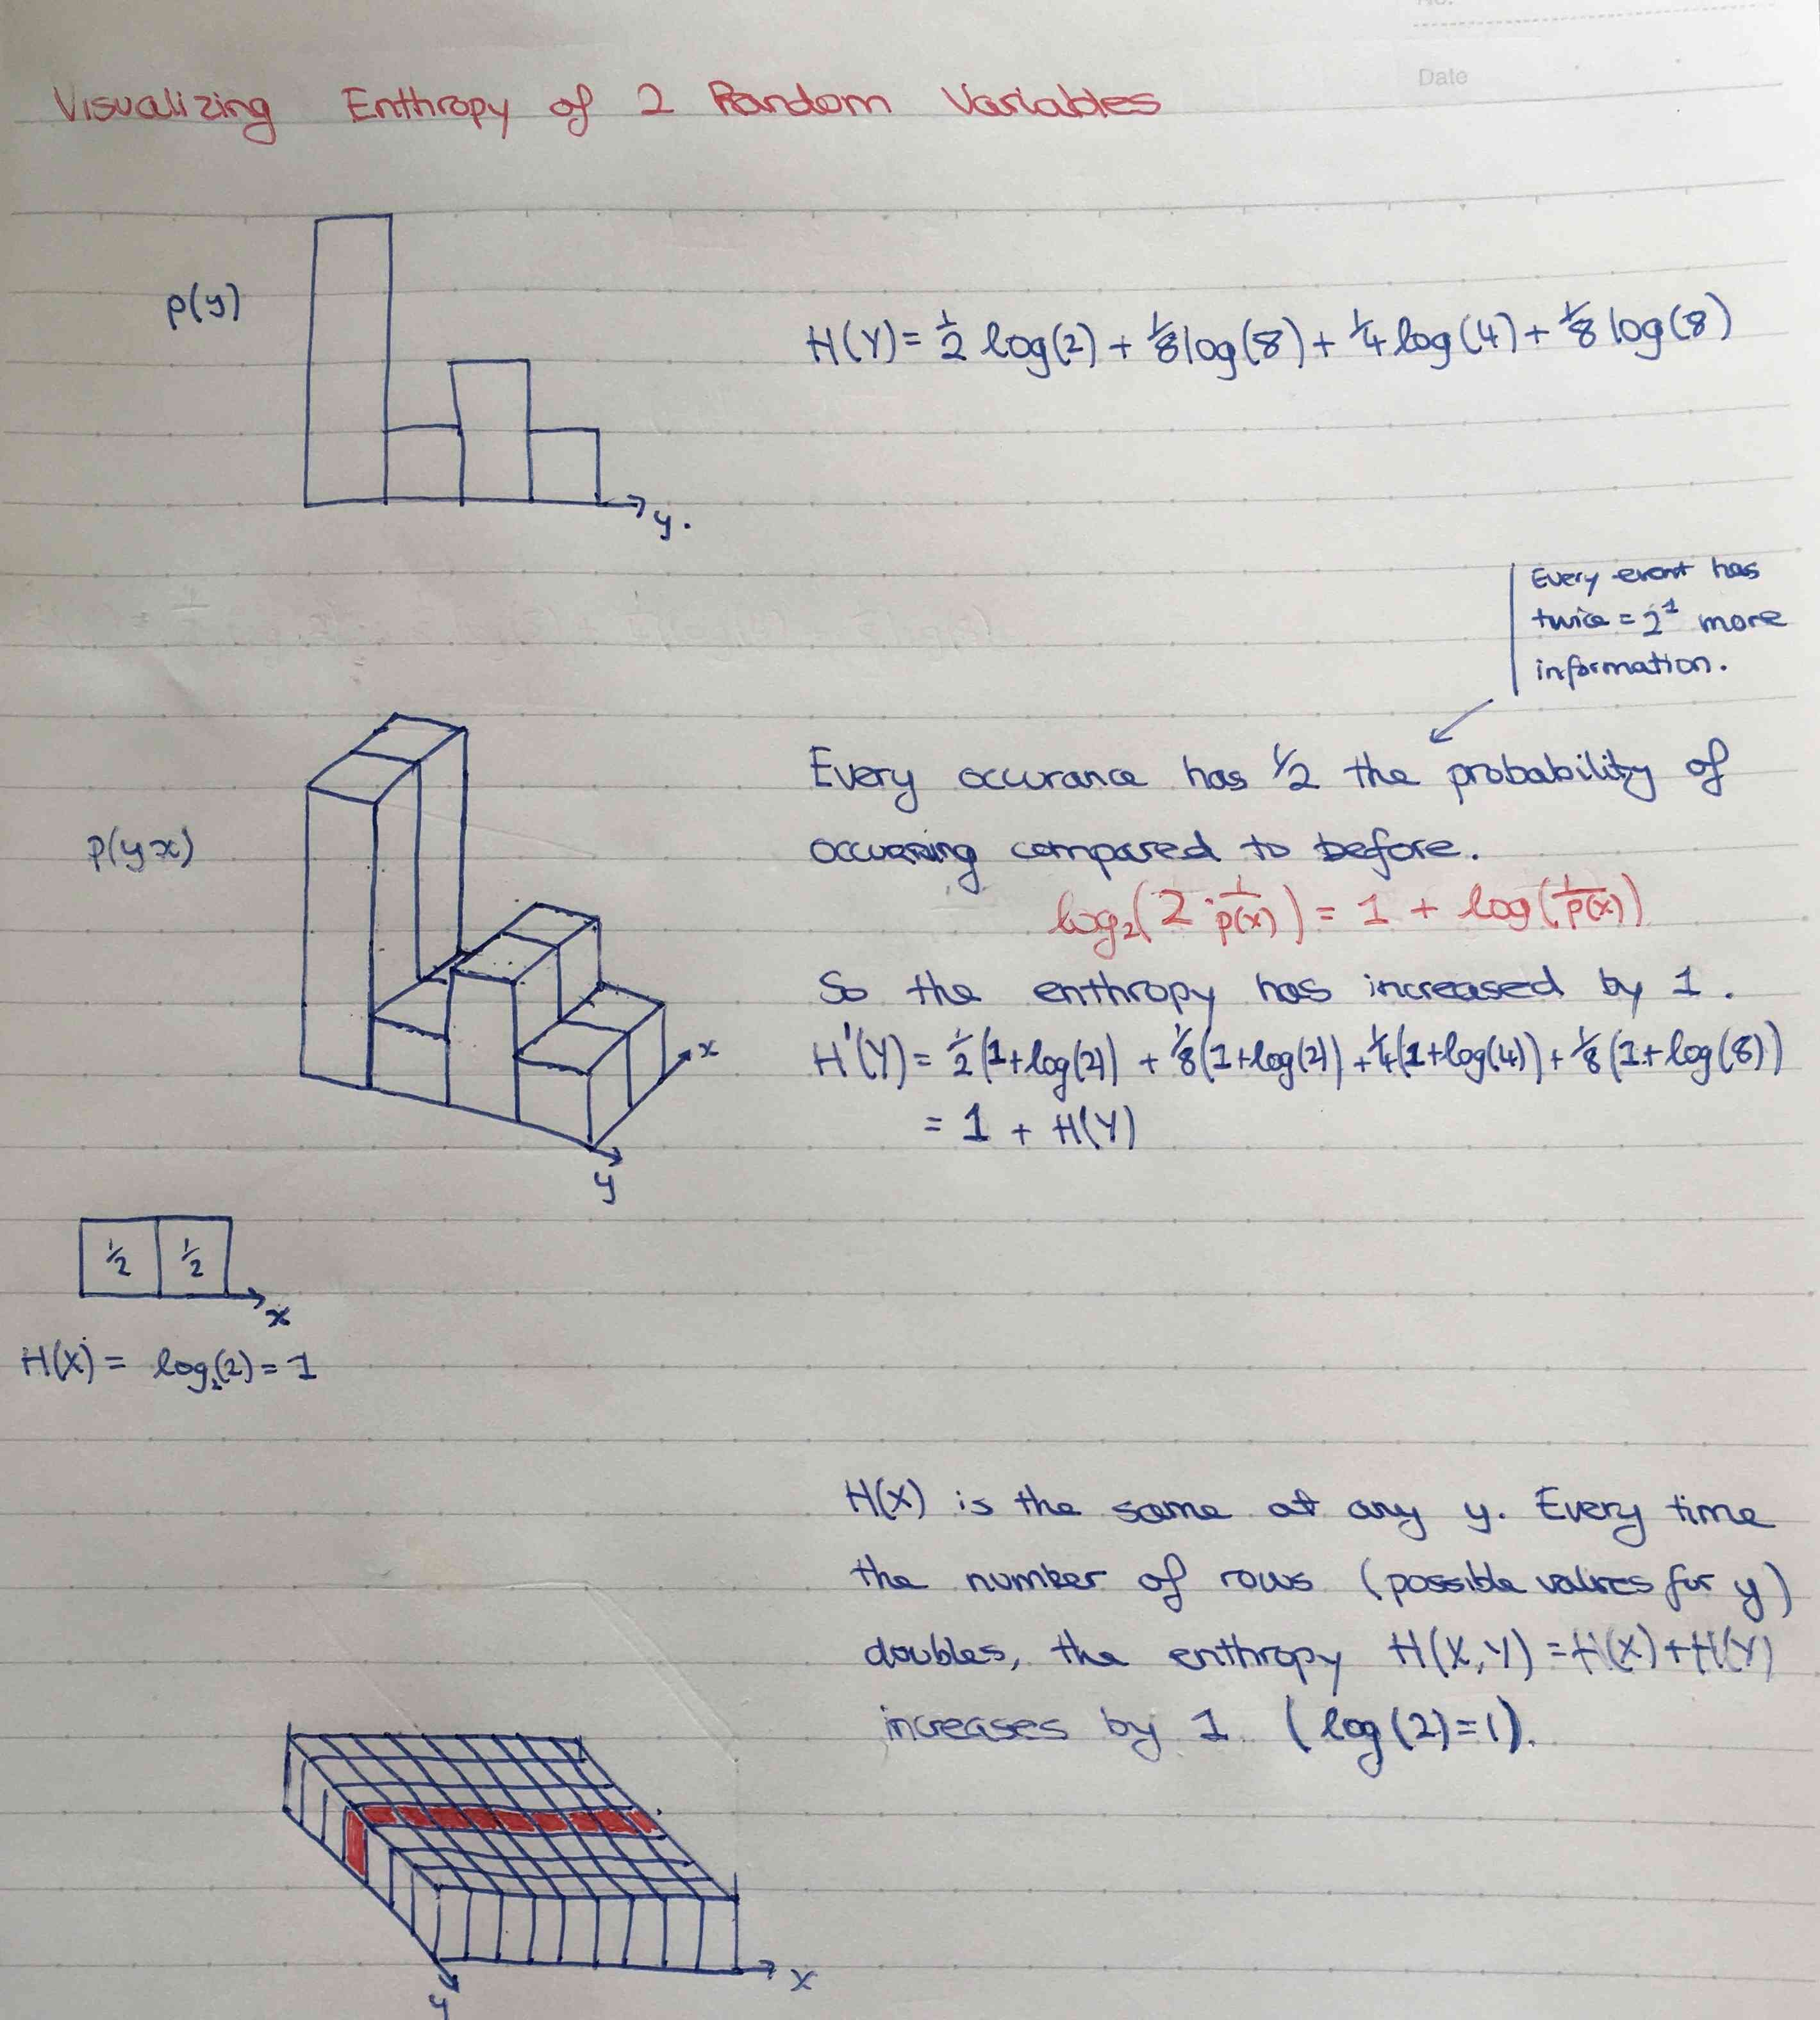 No.
Date
Visualizing Enthropy of 2 Random Variables
p(y)
H(Y) = 1/2 log(2) + 1/8 log(8) + 1/4 log(4) + 1/8 log(8)
y.
Every event has
twice = 2¹ more
information.
Every occurance has 1/2 the probability of
p(yx)
occurring compared to before.
log₂(2 · 1/p(x)) = 1 + log(1/p(x))
So the enthropy has increased by 1.
H'(Y) = 1/2 (1+log(2)) + 1/8 (1+log(2)) + 1/4 (1+log(4)) + 1/8 (1+log(8))
= 1 + H(Y)
x
y
1/2 1/2
x
H(X) = log₂(2) = 1
H(X) is the same at any y. Every time
the number of rows (possible values for y)
doubles, the enthropy H(X,Y) = H(X)+H(Y)
increases by 1 (log(2)=1).
x
y